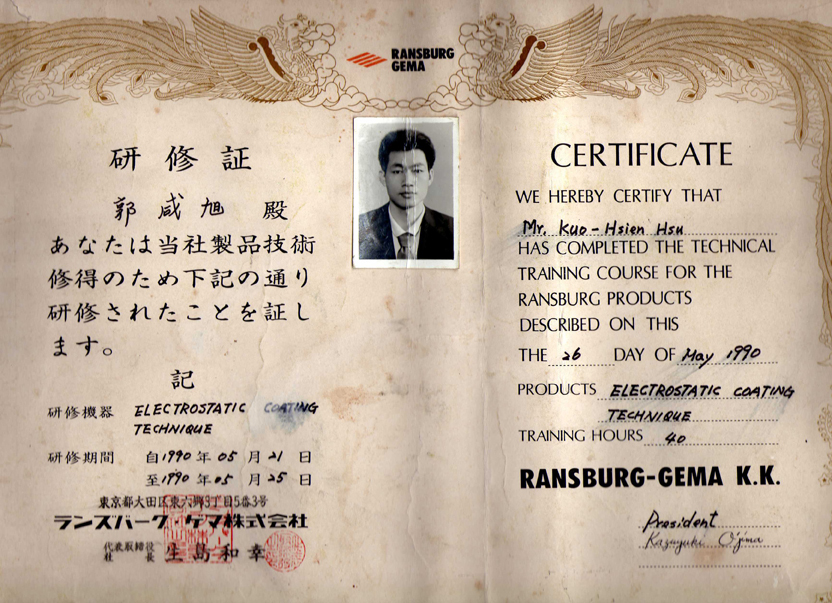 RANSBURG
GEMA
研修証
郭咸旭 殿
あなたは当社製品技術
修得のため下記の通り
研修されたことを証し
ます。
記
研修機器 ELECTROSTATIC COATING
TECHNIQUE
研修期間 自1990年05月21日
至1990年05月25日
東京都大田区東六郷3丁目5番3号
ランズバーグ・ゲマ株式会社
代表取締役
社長
生島和幸
CERTIFICATE
WE HEREBY CERTIFY THAT
Mr. Kuo-Hsien Hsu
HAS COMPLETED THE TECHNICAL
TRAINING COURSE FOR THE
RANSBURG PRODUCTS
DESCRIBED ON THIS
THE 26 DAY OF May 1990
PRODUCTS ELECTROSTATIC COATING
TECHNIQUE
TRAINING HOURS 40
RANSBURG-GEMA K.K.
President
Kazuyuki O'jima